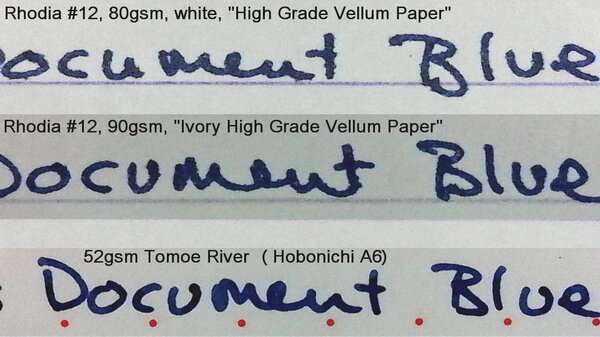 Rhodia #12, 80gsm, white, "High Grade Vellum Paper"
Document Blue
Rhodia #12, 90gsm, "Ivory High Grade Vellum Paper"
Document Blue
52gsm Tomoe River ( Hobonichi A6)
Document Blue